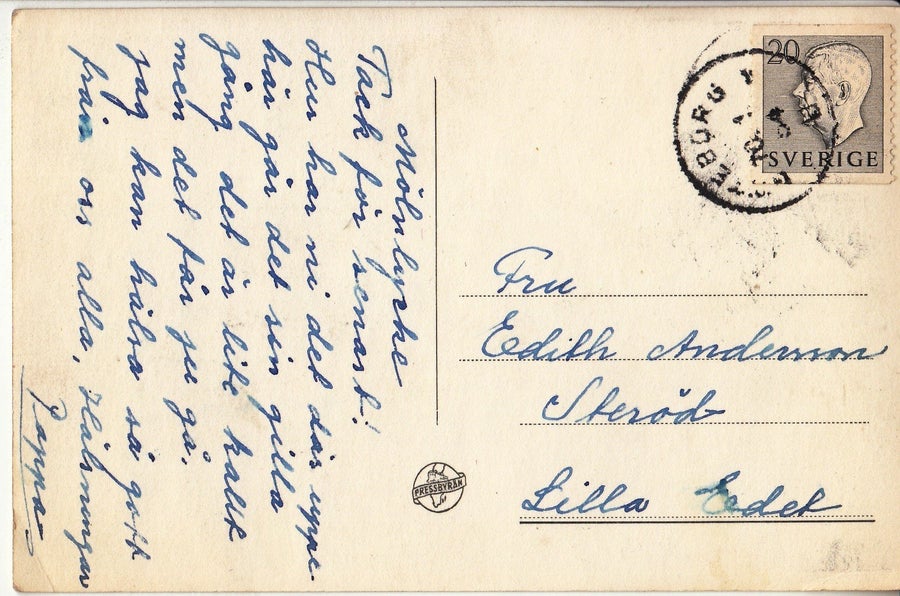 Mölnlycke
Tack för senast!
Hur har ni det där uppe.
här går det sin gilla
gång det är lite kallt
men det får ju gå.
jag kan hälsa så gott
från oss alla, Hälsningar
Pappa
20
SVERIGE
GÖTEBORG
Fru
Edith Anderson
Steröd
Lilla Edet
PRESSBYRÅN